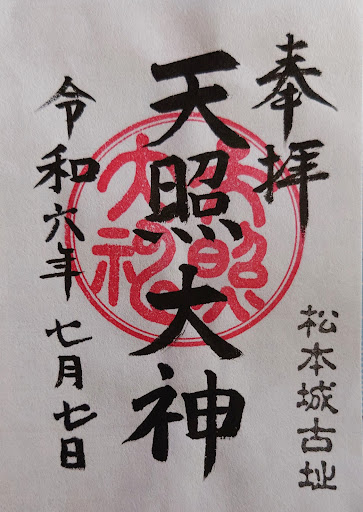 奉拝
松本城古址
天照大神
天照
大神
令和六年七月七日